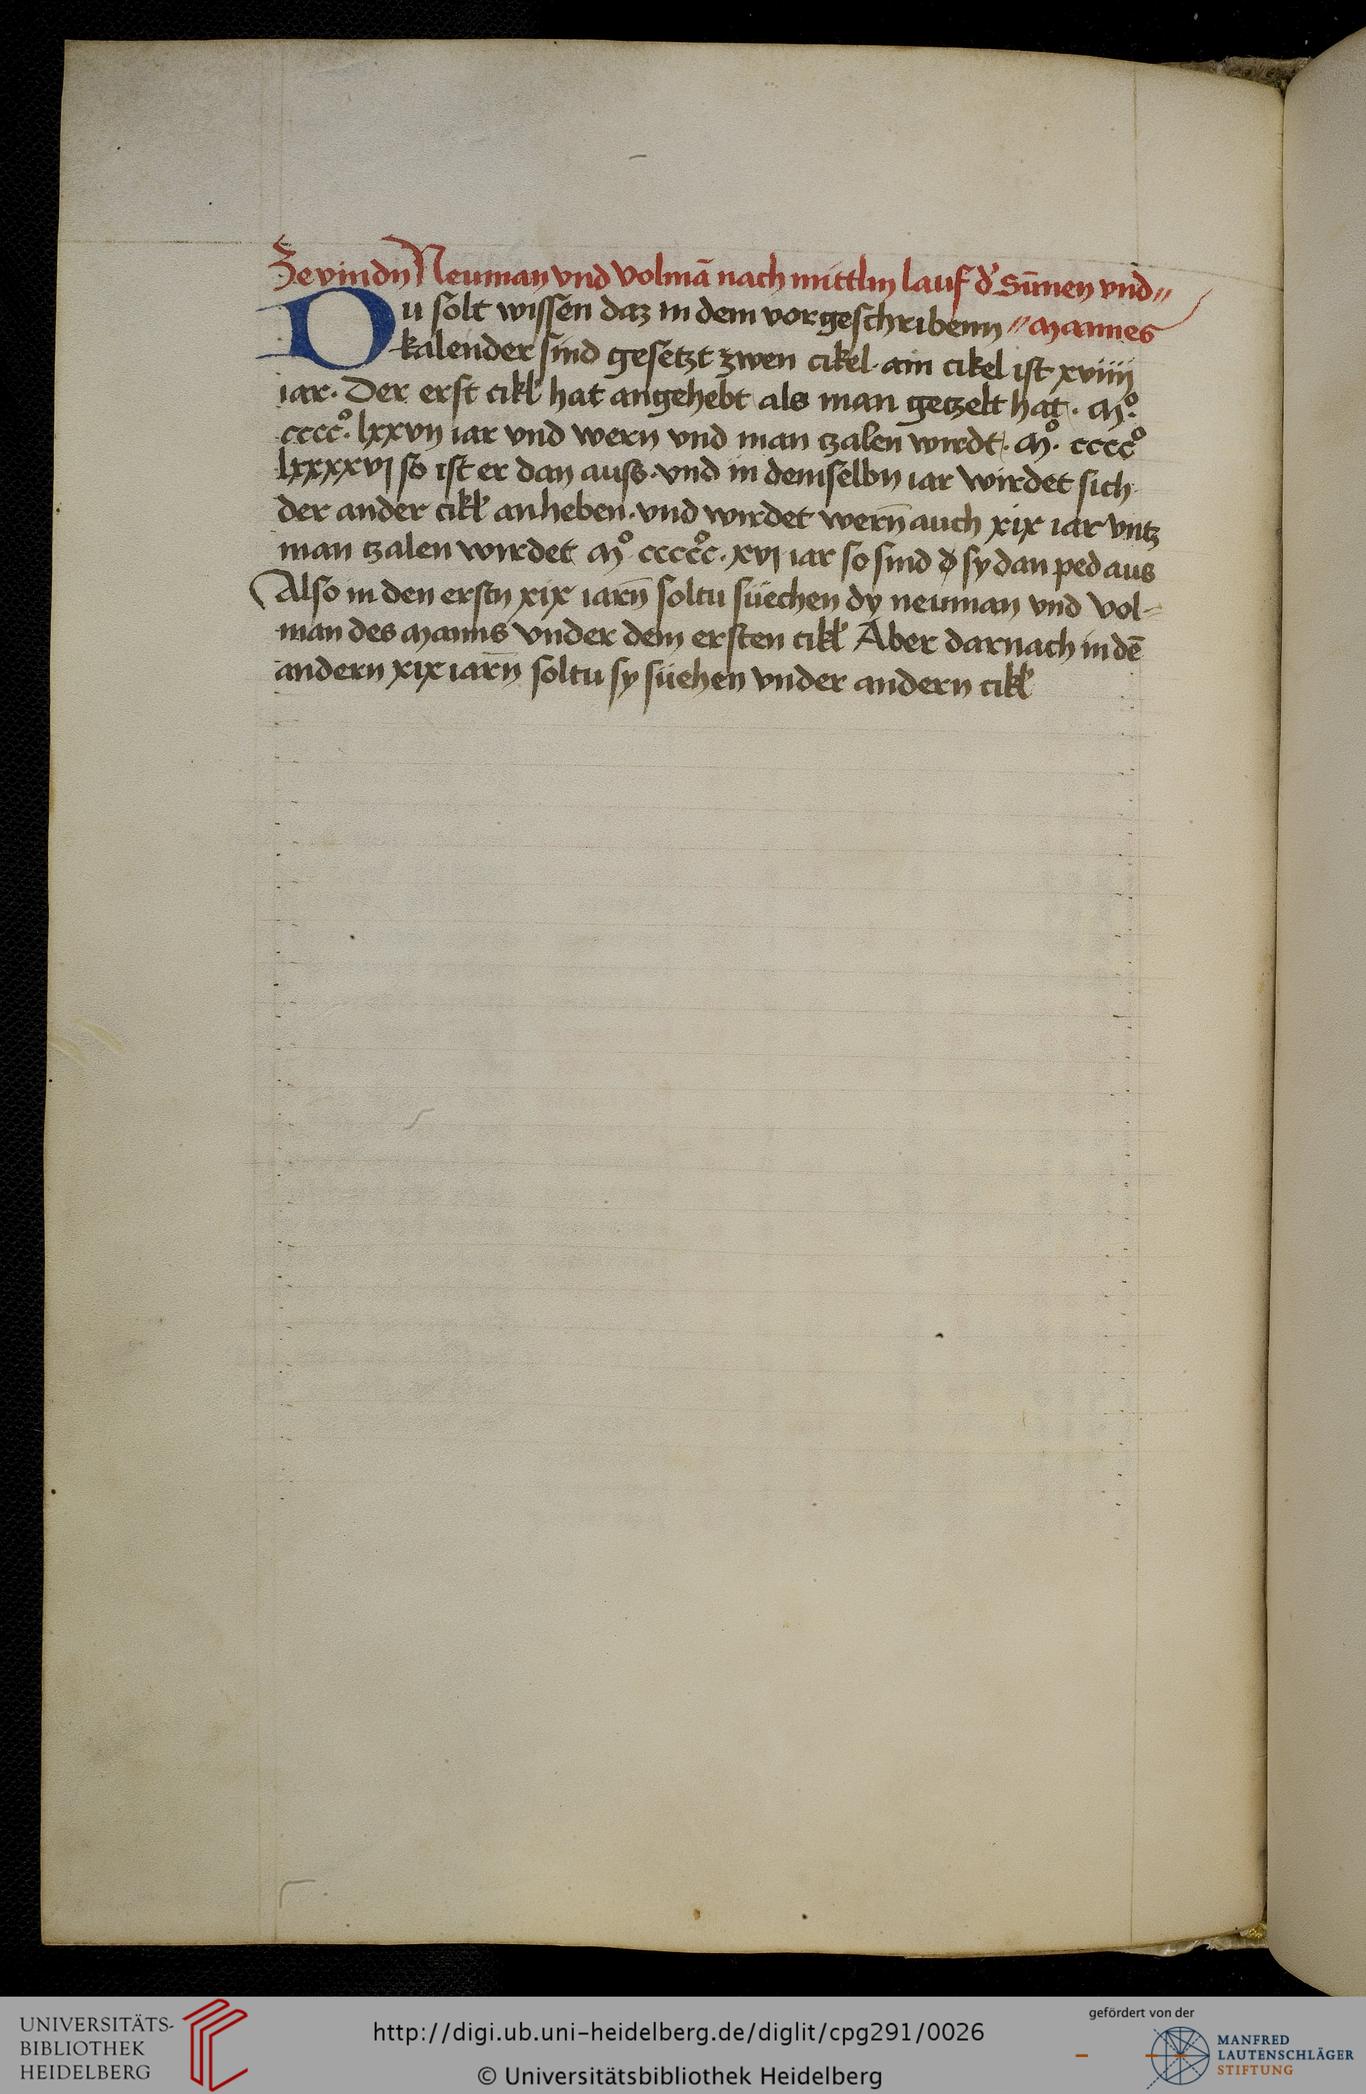 Zevindn Neuman vnd volmā nach mittlm lauf d' Sūnen vnd〃
Du solt wissen daz in dem vorgeschribenn 〃Mannes
kalender sind gesetzt zwen cikel · ain cikel ist xviiii
iar · Der erst cikl hat angehebt als man getzelt hat · Mº
ccccº · lxxvij iar vnd wern vnd man tzalen wirdt · Mº · ccccº
lxxxxvj so ist er dan auss · vnd in demselbn iar wirdet sich
der ander cikl anheben · vnd wirdet wern̄ auch xix iar vntz
man tzalen wirdet Mº cccccº · xvj iar so sind sy dan ped aus
Also in den erstn xix iarn̄ soltu süechen dy neuman vnd vol-
man des Manns vnder dem ersten cikl Aber darnach in dē
andern xix iarn̄ soltu sy süehen vnder andern cikl
UNIVERSITÄTS-
BIBLIOTHEK
HEIDELBERG
http://digi.ub.uni-heidelberg.de/diglit/cpg291/0026
© Universitätsbibliothek Heidelberg
gefördert von der
MANFRED
LAUTENSCHLÄGER
STIFTUNG